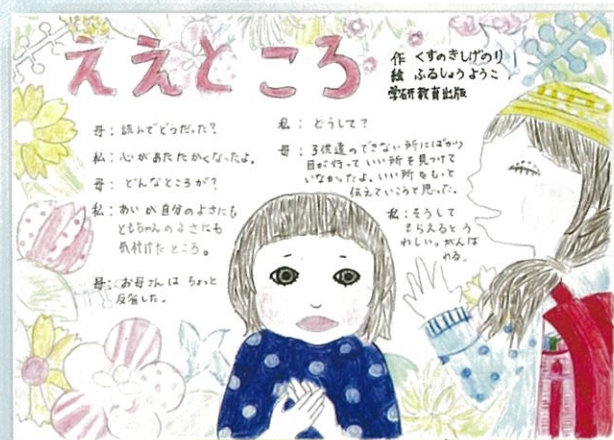 ええところ
作 くすのきしげのり
絵 ふるしょうようこ
学研教育出版
母：読んでどうだった？
私：心があたたかくなったよ。
母：どんなところが？
私：あいが自分のよさにも
ともちゃんのよさにも
気付けたところ。
母：お母さんはちょっと
反省した。
私：どうして？
母：子供達のできない所にばかり
目が行っていい所を見つけて
いなかったよ。いい所をもっと
伝えていこうと思った。
私：そうして
もらえるとう
れしい。がんば
れる。